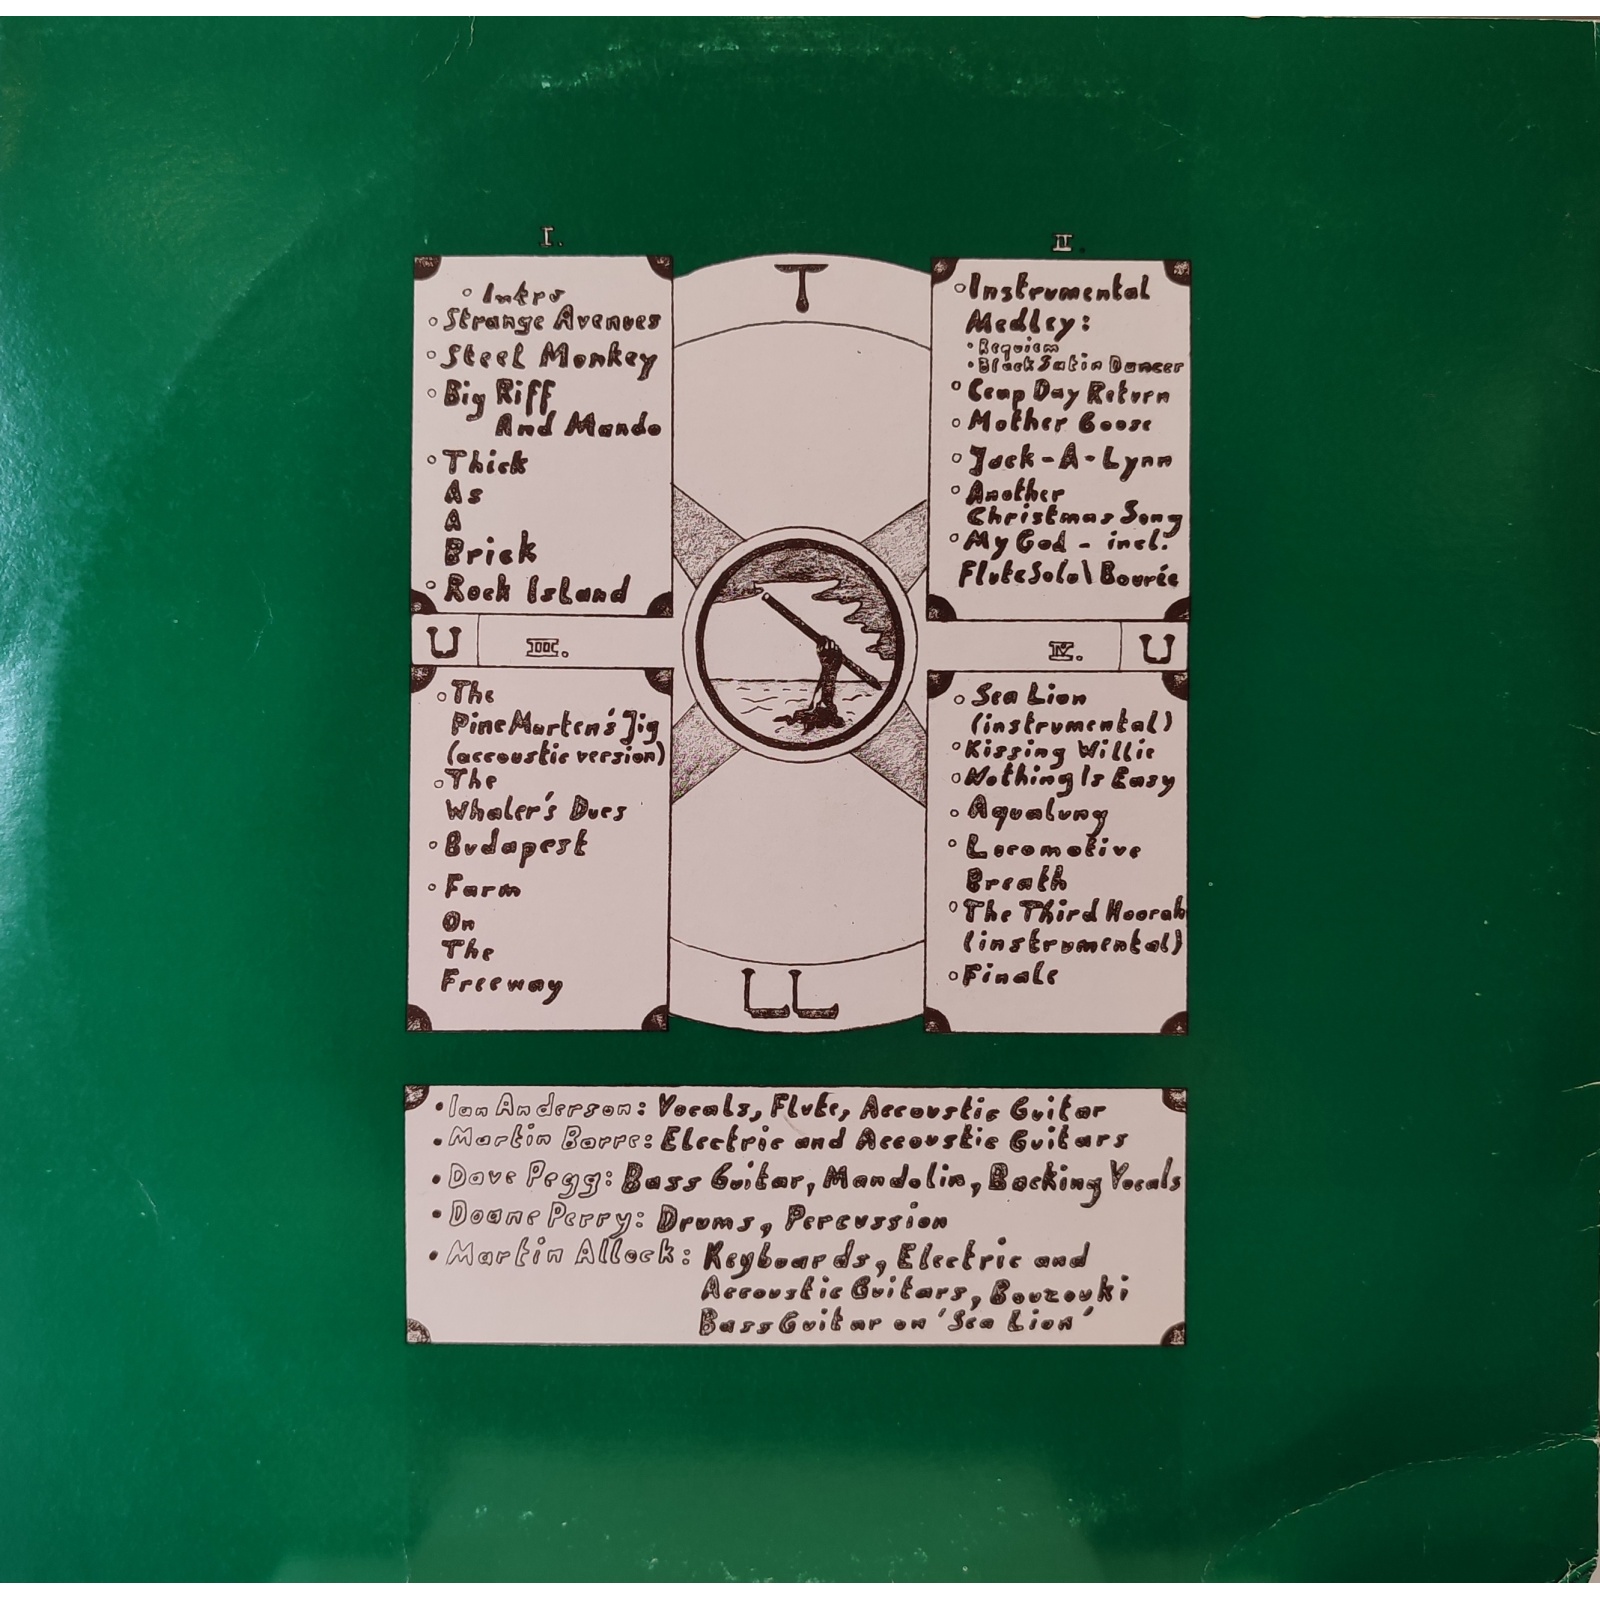 I.
° Intro
° Strange Avenues
° Steel Monkey
° Big Riff
And Mando
° Thick
As
A
Brick
° Rock Island
T
II.
° Instrumental
Medley:
• Requiem
• Black Satin Dancer
° Ceap Day Return
° Mother Goose
° Jack-A-Lynn
° Another
Christmas Song
° My God - incl.
Flute Solo\ Bourée
U
III.
° The
Pine Marten's Jig
(accoustic version)
° The
Whaler's Dues
° Budapest
° Farm
On
The
Freeway
LL
IV.
U
° Sea Lion
(instrumental)
° Kissing Willie
° Nothing Is Easy
° Aqualung
° Locomotive
Breath
° The Third Hoorah
(instrumental)
° Finale
• Ian Anderson: Vocals, Flute, Accoustic Guitar
• Martin Barre: Electric and Accoustic Guitars
• Dave Pegg: Bass Guitar, Mandolin, Backing Vocals
• Doane Perry: Drums, Percussion
• Martin Allock: Keyboards, Electric and
Accoustic Guitars, Bouzouki
Bass Guitar on 'Sea Lion'